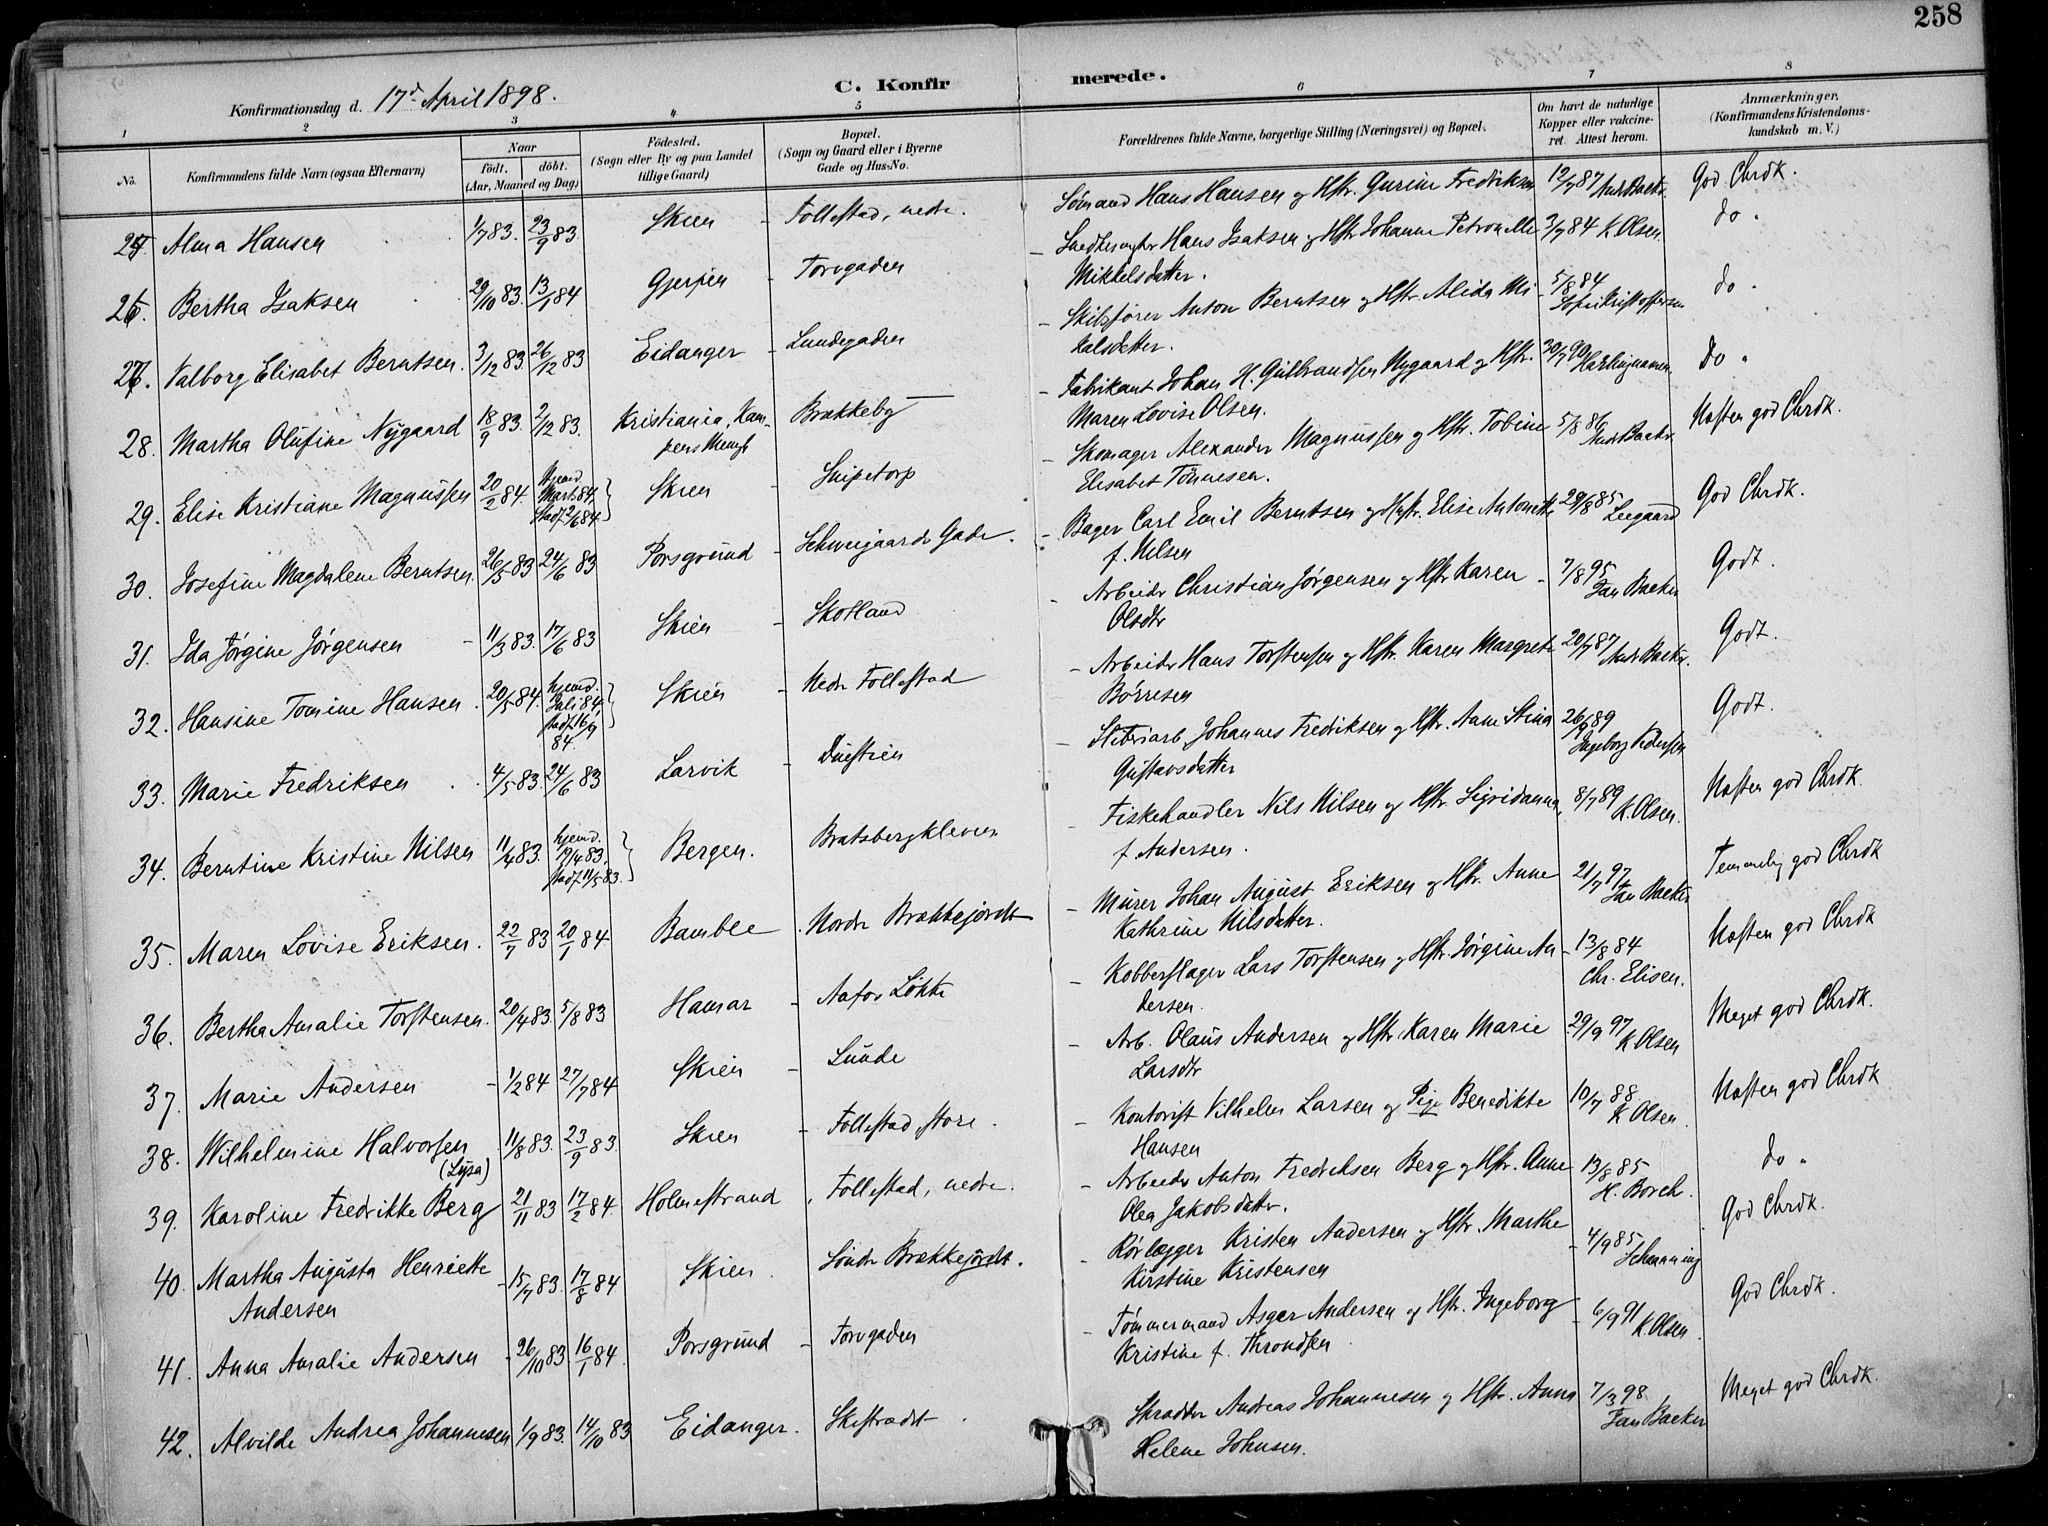 258
C. Konfirmerede.
Konfirmationsdag d. 17d April 1898.
1 2 3 4 5 6 7 8
No.
Konfirmandens fulde Navn (ogsaa Efternavn)
Naar
födt. döbt.
(Aar, Maaned og Dag)
Födested.
(Sogn eller By og paa Landet
tillige Gaard)
Bopæl.
(Sogn og Gaard eller i Byerne
Gade og Hus-No.
Forældrenes fulde Navne, borgerlige Stilling (Næringsvei) og Bopæl.
Om havt de naturlige
Kopper eller vakcine-
ret. Attest herom.
Anmærkninger.
(Konfirmandens Kristendoms-
kundskab m. V.)
25. Alma Hansen 1/7 83. 23/9 83. Skien - Follestad, nedre. Sømand Hans Hansen og Hstr. Gurine Fredriksen 12/7 87 God Chrdk.
26. Bertha Isaksen 29/10 83. 13/1 84 Gjerpen - Torvgaden - Hans Isaksen og Hstr Johanne Petronelle 3/7 84 K. Olsen. do.
Mikkelsdatter.
27. Valborg Elisabet Berntsen. 3/12 83. 26/12 83 Eidanger - Lundegaden - Skibsfører Anton Berntsen og Hstr Alida Mi- 5/8 84 do.
kalsdatter.
28. Martha Olufine Nygaard 18/9 83. 2/12 83. Kristiania, Kam- Brækkeby - Fabrikant Johan H. Gulbrandsen Nygaard og Hstr. 30/7 90 do.
pens Mengh Maren Lovise Olsen.
29. Elise Kristiane Magnussen 20/2 84. hjemd. Mart. 84. stadf. 2/6 84. Skien - Snipetorp - Skomager Alexander Magnussen og Hstr. Tobine 5/8 86 Næsten god Chrdk.
Elisabet Tönnesen.
30. Josefine Magdalene Berntsen. 26/5 83 24/6 83 Porsgrund - Schweigaards Gade. - Bager Carl Emil Berntsen og Hstr. Elise Antonette 29/8 85 Leegaard God Chrdk.
f. Nilsen
31. Ida Jørgine Jørgensen - 11/3 83. 17/6 83 Skien - Skotland - Arbeider Christian Jørgensen og Hstr Karen - 7/8 95 Jan Backer Godt.
Olsdtr
32. Hansine Tomine Hansen. 20/5 84. hjemd. Juli 84, stadf. 16/9 84. Skien - Nedre Follestad - Arbeider Hans Torstensen og Hstr. Karen Margrete 20/7 87 Godt.
Børresen
33. Marie Fredriksen. 4/5 83. 24/6 83 Larvik - Duestien - Johannes Fredriksen og Hstr. Anne Stina 26/9 89 Ingeborg Pedersen Godt.
Gustavsdatter
34. Berntine Kristine Nilsen 11/4 83. hjemd. 19/4 83. stadf. 11/5 83. Bergen. Bratsbergkleven - Fiskehandler Nils Nilsen og Hstr. Sigridanna, 8/7 89 K. Olsen. Næsten god Chrdk.
f. Andersen.
35. Maren Lovise Eriksen. 22/7 83 20/1 84 Bamble. Nordre Brækkejordet - Murer Johan August Eriksen og Hstr. Anne 21/7 97 Jan Backer Temmelig god Chrdk
Kathrine Nilsdatter.
36. Bertha Amalie Torstensen. 20/4 83. 5/8 83 Hamar - Aafos Løkke - Kobberslager Lars Torstensen og Hstr. Jørgine An- 13/8 84 Chr. Elisen. Næsten god Chrdk
dersen.
37. Marie Andersen - 1/2 84 27/7 84 Skien - Lunde - Arb. Olaus Andersen og Hstr. Karen Marie 29/9 97 K Olsen Meget god Chrdk.
Larsdtr
38. Wilhelmine Halvorsen (Lysa) 11/8 83. 23/9 83. Skien - Follestad store. - Kontorist Vilhelm Larsen og Pige Benedikte 10/7 88 K Olsen. Næsten god Chrdk
Hansen
39. Karoline Fredrikke Berg 21/11 83 17/2 84. Holmestrand, Follestad, nedre. - Arbeider Anton Fredriksen Berg og Hstr. Anne 13/8 85 H. Borch. do.
Olea Jakobsdatter.
40. Martha Augusta Henriette - 15/7 83. 17/8 84 Skien. Søndre Brækkejordet. - Rørlægger Kristen Andersen og Hstr. Marthe - 4/9 85 Schanning God Chrdk.
Andersen Kirstine Kristensen
41. Anna Amalie Andersen - 26/10 83. 16/1 84. Porsgrund - Torvgaden - Tømmermand Asger Andersen og Hstr. Ingeborg - 6/9 91 K Olsen. God Chrdk.
Kristine f. Throndsen
42. Alvilde Andrea Johannesen 1/9 83. 14/10 83 Eidanger. Skistrædet. Skrædder Andreas Johannesen og Hstr. Anna 7/3 98. Jan Backer Meget god Chrdk.
Helene Johnsen.